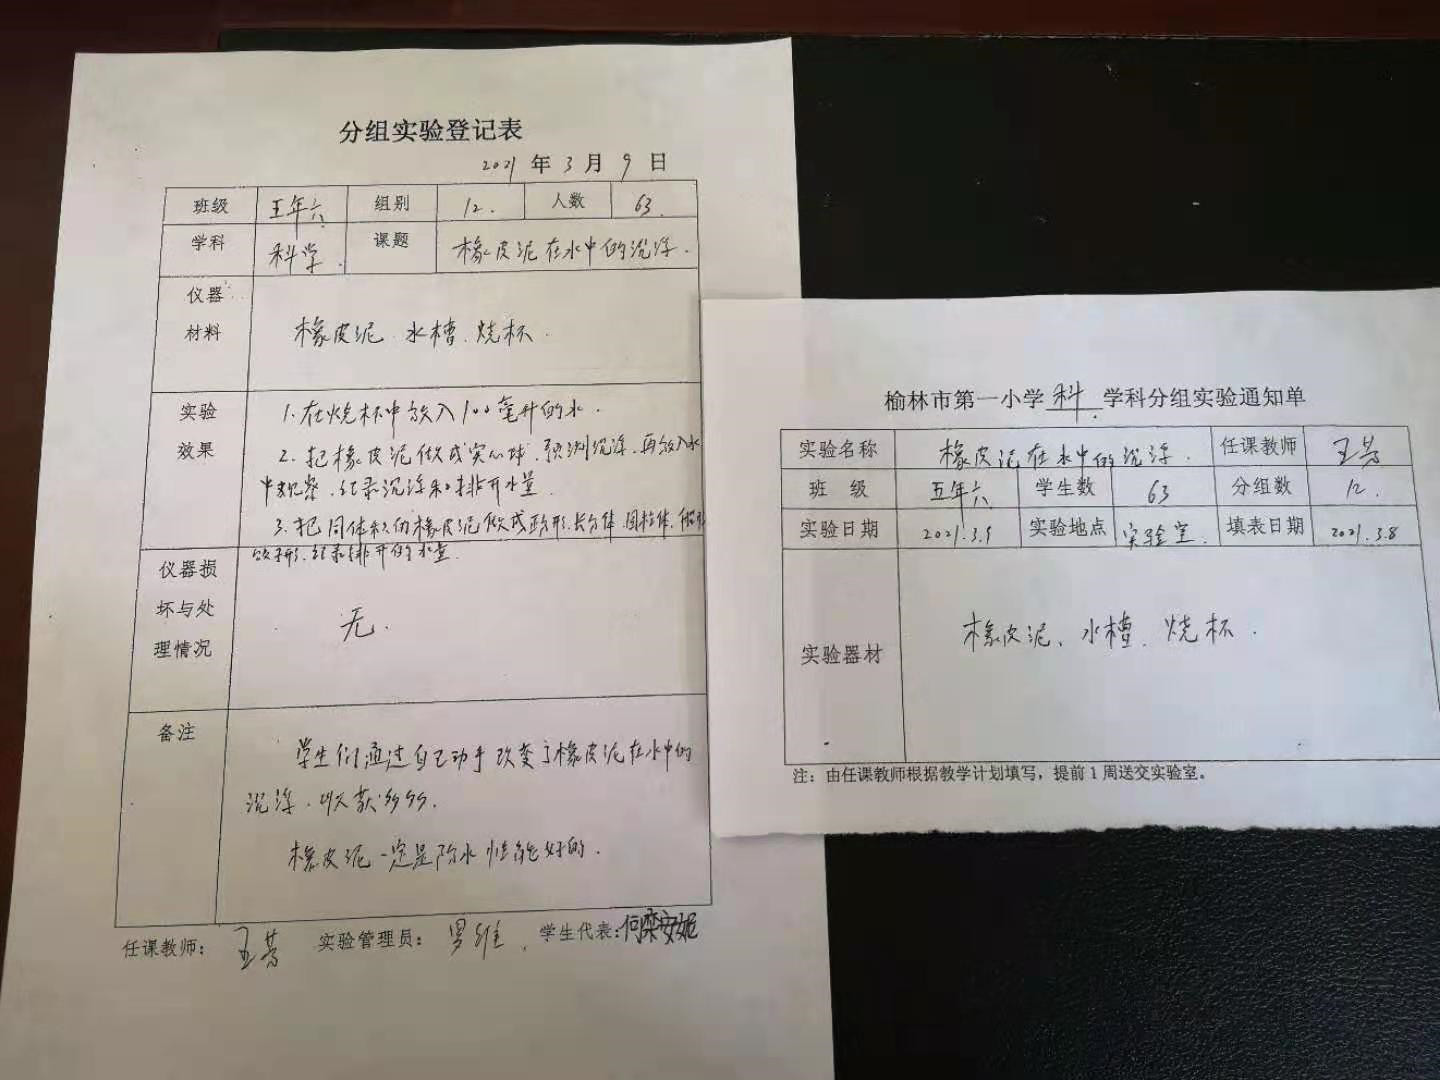 分组实验登记表
2021 年 3 月 9 日
班级 五年六 组别 12. 人数 63.
学科 科学. 课题 橡皮泥在水中的沉浮.
仪器
材料 橡皮泥、水槽、烧杯.
实验
效果
1.在烧杯中放入100毫升的水.
2.把橡皮泥做成实心球,预测沉浮,再放入水
中观察,记录沉浮和排开水量
3.把同体积的橡皮泥做成 形、长方体、圆柱体、船形
形,记录排开的水量.
仪器损
坏与处
理情况
无.
备注
学生们通过自己动手改变了橡皮泥在水中的
沉浮,收获多多.
橡皮泥一定是防水性能好的.
任课教师: 王芳 实验管理员: 罗维. 学生代表:何栾安妮
榆林市第一小学 科 学科分组实验通知单
实验名称 橡皮泥在水中的沉浮. 任课教师 王芳
班 级 五年六 学生数 63 分组数 12.
实验日期 2021.3.9 实验地点 实验室. 填表日期 2021.3.8
实验器材 橡皮泥、水槽、烧杯.
注: 由任课教师根据教学计划填写,提前1周送交实验室。